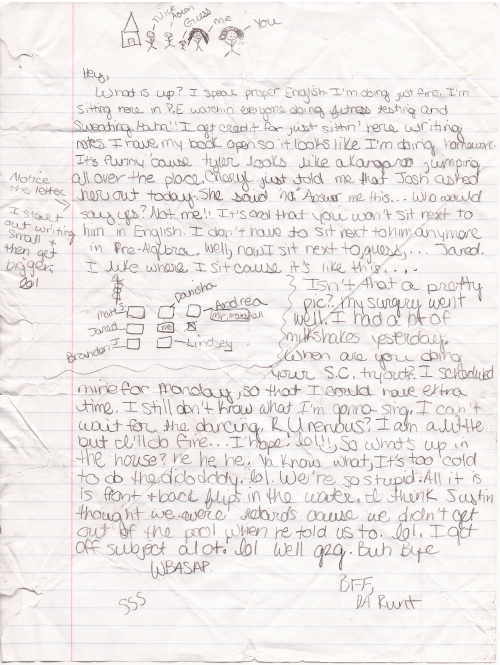 Nick
me
You
Hey,
What is up? I speak proper English. I'm doing just fine. I'm
sitting here in P.E watchin everyone doing fitness testing and
sweating. Haha!! I get credit for just sittin' here writing
notes. I have my book open so it looks like I'm doing homework.
It's funny 'cause tyler looks like a kangaroo jumping
all over the place. just told me that Josh asked
her out today. She said "no." Answer me this... who would
say yes? Not me!! It's that you won't sit next to
him in English. I don't have to sit next to him anymore
in Pre-Algbra. Well, now I sit next to, guess,... Jared.
I like where I sit cause it's like this....
Notice
the letter
I start
out writing
small &
then get
bigger.
lol
Danisha
Andrea
Mr.
Jared
me
Brandon
Lindsey
Isn't that a pretty
pic? my surgury went
well. I had a lot of
milkshakes yesterday.
When are you doing
your S.C. tryout? I scheduled
mine for Monday, so that I could have extra
time. I still don't know what I'm gonna sing. I can't
wait for the dancing. R U nervous? I am a little
but I'll do fine... I hope! lol!! So what's up in
the house? he he he.. Ya know what, It's too cold
to do the lol. We're so stupid. All it is
is front + back flips in the water. I think Justin
thought we were retards cause we didn't get
out of the pool when he told us to. lol. I got
off subject alot. lol well g2g. Buh Bye
WBASAP.
BFF,
DA Runt
SSS